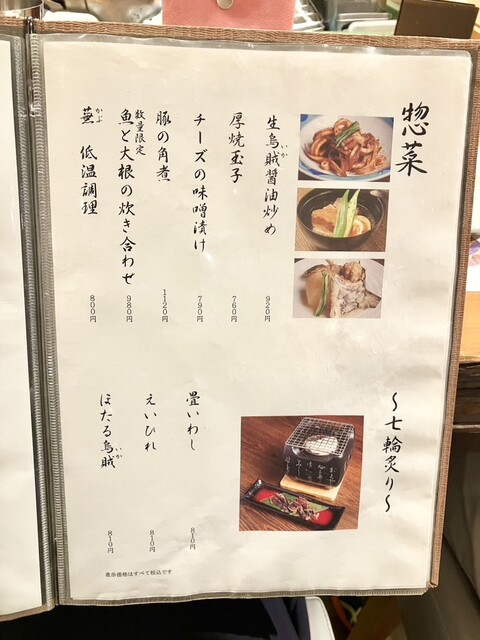 惣菜
生烏賊醤油炒め
いか
920円
厚焼玉子
760円
チーズの味噌漬け
790円
豚の角煮
1120円
数量限定
魚と大根の炊き合わせ
980円
蕪 低温調理
かぶ
800円
～七輪炙り～
畳いわし
810円
えいひれ
810円
ほたる烏賊
いか
810円
表示価格はすべて税込です